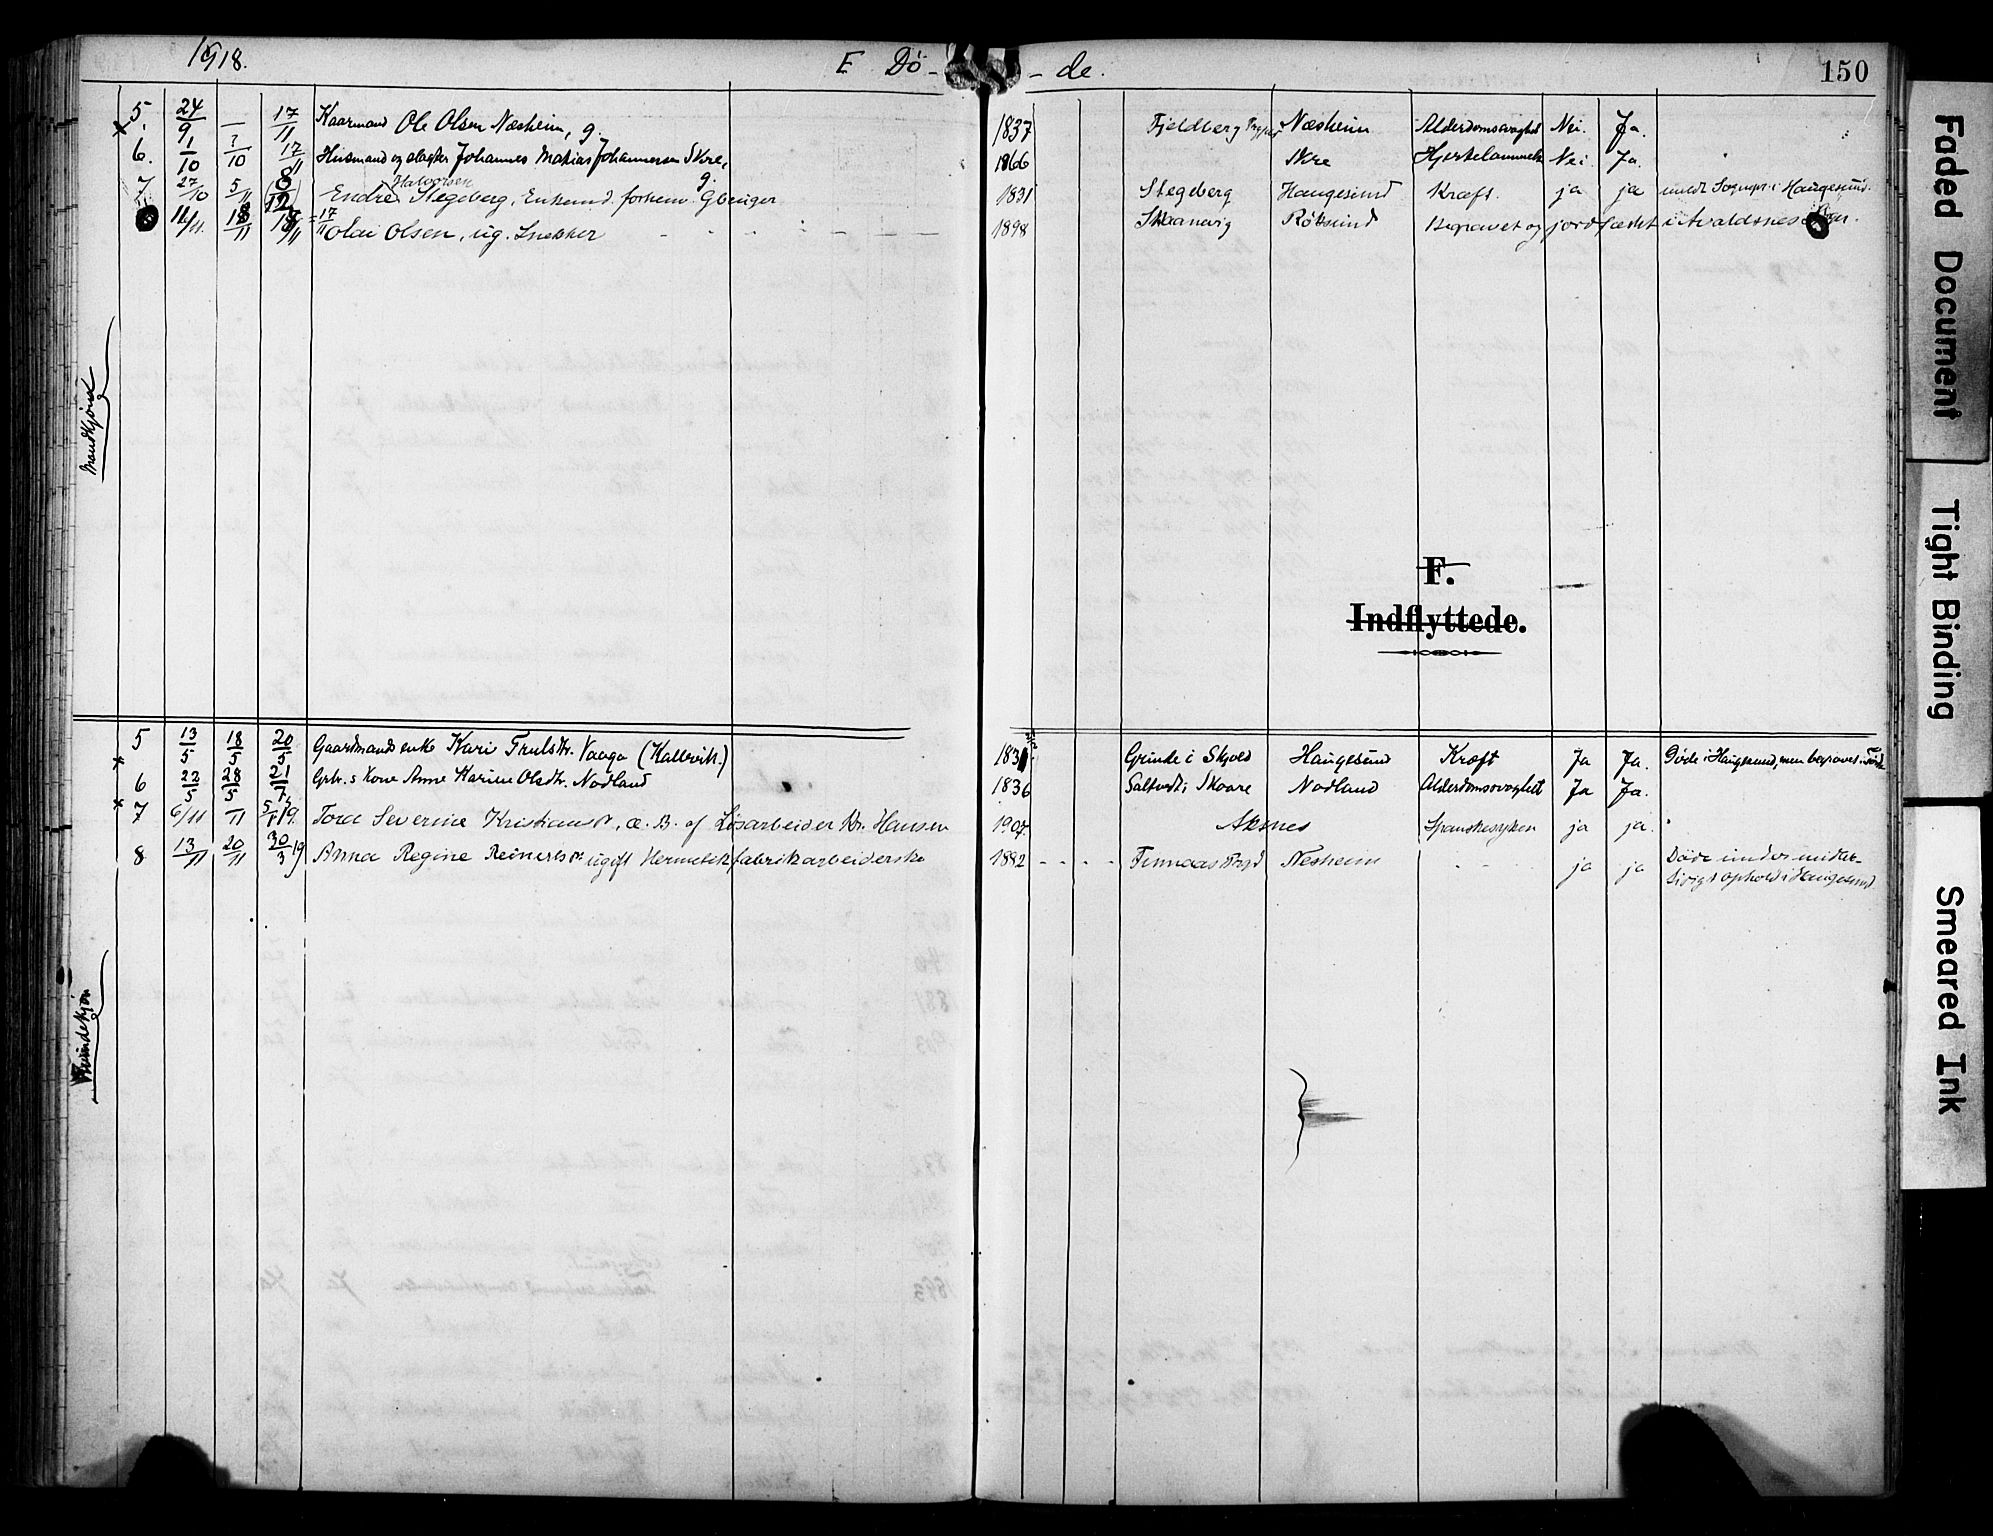 1918.
E Dö- - de.
150
5. 24/9 — 17/11 Kaarmand Ole Olsen Næsheim, g. 1837 Fjeldberg Prgj. Næsheim Alderdomssvaghet Nei. Ja.
6. 1/10 ?/10 17/11 Husmand og slagter Johannes Matias Johannesen Skre, g. 1866 Skre Hjertelammelse Nei Ja.
7 27/10 5/11 8/12 Endre Halvorsen Stegeberg, Enkemd. forhenv. Gbruger 1831 Stegberg Haugesund Kræft. ja ja meldt Sognepr. i Haugesund.
11/11. 18/11 18/11 = 17/11 Olai Olsen, ug. Snekker 1898 Skaanevig Röksund Begravet og jordfæstet i Avaldsnes
Mandkjönnet
F.
Indflyttede.
5 13/5 18/5 20/5 Gaardmands enke Kari Trulsdtr. Vaaga (Kallevik.) 1831 Grinde i Skjold Haugesund Kræft Ja Ja. Døde i Haugesund, men begravet i
6 22/5 28/5 21/7 Gbr.s Kone Anne Karine Olsdtr. Nodland 1836 Saltvedt i Skaare Nodland Alderdomssvaghet Ja Ja.
7 6/11 11 5/1 19. Tora Severine Kristiansdr., æ. B. af Løsarbeider Kr. Hansen 1907. Aksnes Spanskesyken ja ja.
8 13/11 20/11 30/3 19 Anna Regine Reinertsdr. ugift Hermetikfabrikarbeiderske 1892 - - - - Finnaas Prgd Nesheim - - ja ja Døde under midler-
tidigt ophold i Haugesund.
Kvindekjön
Faded Document
Tight Binding
Smeared Ink